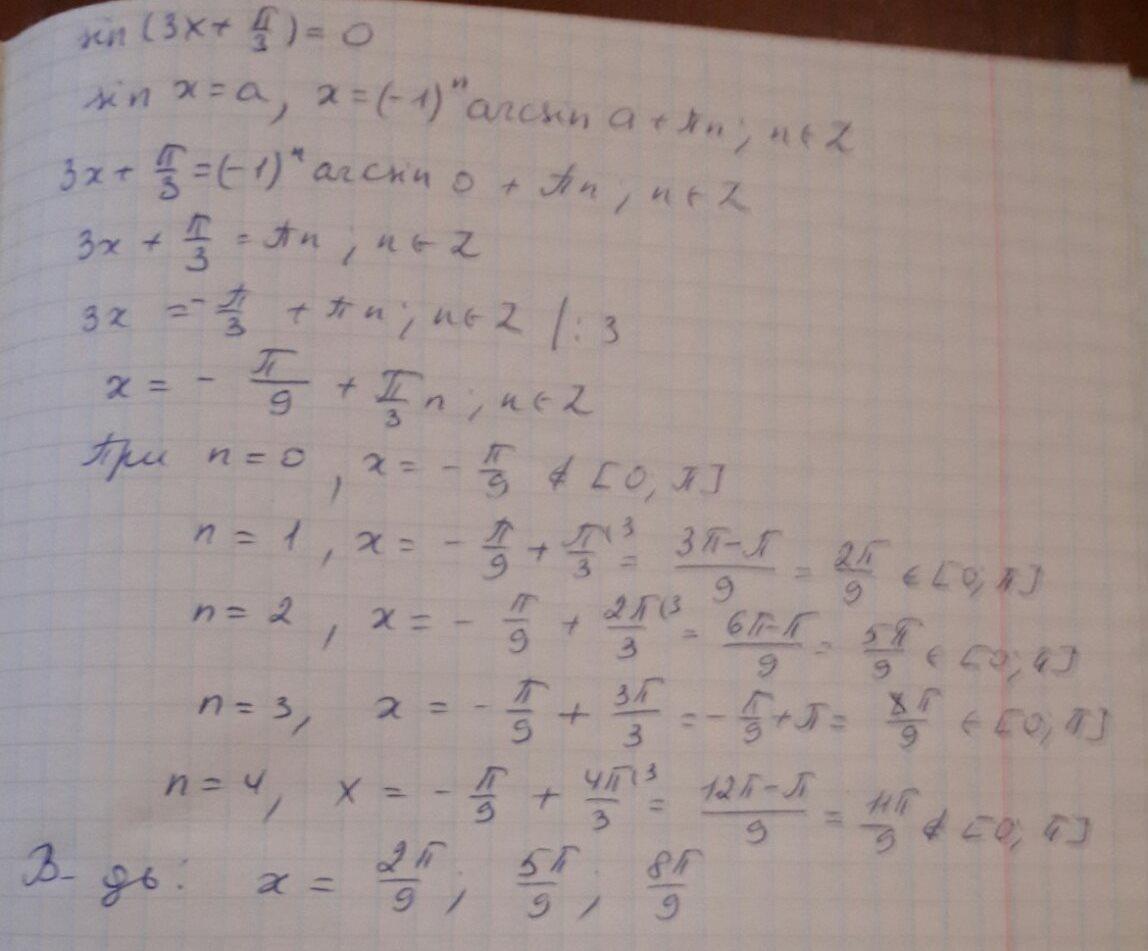 sin (3x + π/3) = 0
sin x = a, x = (-1)ⁿ arcsin a + πn; n ∈ Z
3x + π/3 = (-1)ⁿ arcsin 0 + πn; n ∈ Z
3x + π/3 = πn; n ∈ Z
3x = -π/3 + πn; n ∈ Z /: 3
x = - π/9 + π/3 n; n ∈ Z
При n = 0, x = - π/9 ∉ [0, π]
n = 1, x = - π/9 + π/3 (3 = (3π-π)/9 = 2π/9 ∈ [0; π]
n = 2, x = - π/9 + 2π/3 (3 = (6π-π)/9 = 5π/9 ∈ [0; π]
n = 3, x = - π/9 + 3π/3 = - π/9 + π = 8π/9 ∈ [0; π]
n = 4, x = - π/9 + 4π/3 (3 = (12π-π)/9 = 11π/9 ∉ [0, π]
В-дь: x = 2π/9; 5π/9; 8π/9